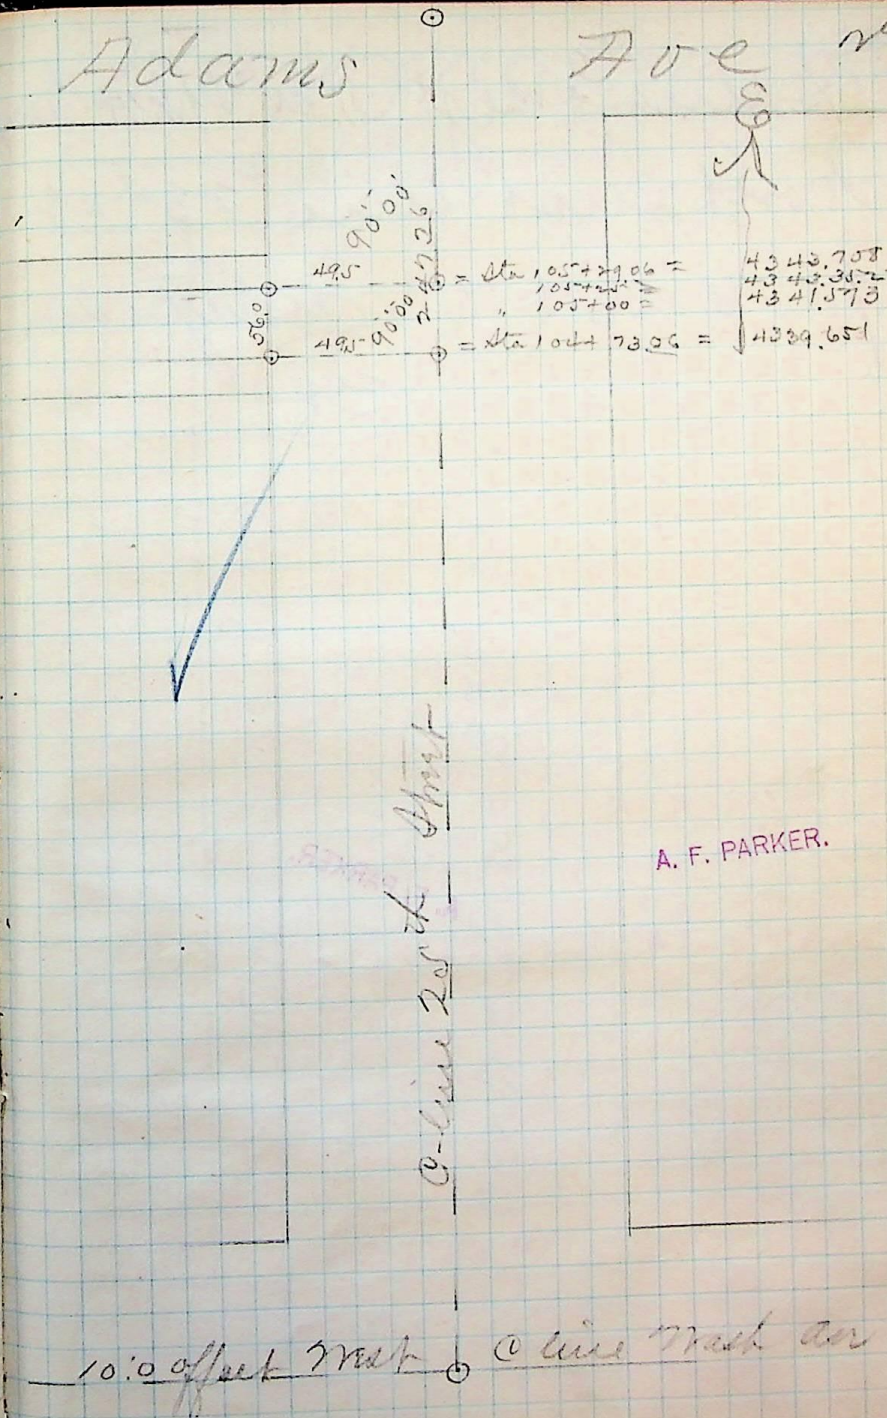 Adams Ave
90°00'
247.26
49.5 = Sta 105+29.06 = 4343.758
105+25 = 4343.352
" 105+00 = 4341.573
56.0
90°00'
49.5 = Sta 104+73.06 = 4339.651
A. F. PARKER.
C-line 25th Street
10.0 offset West C line Wash Av